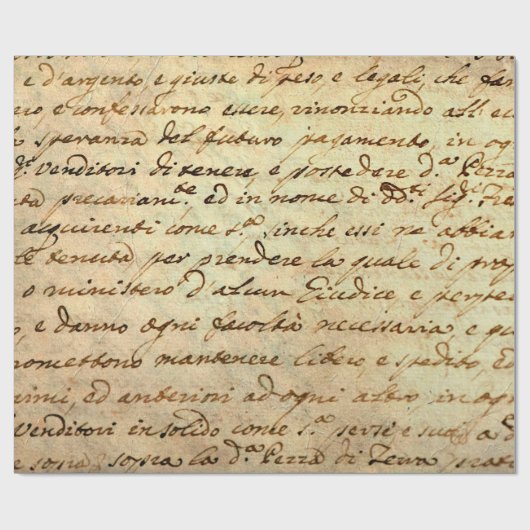 e d'argento, e giuste di peso, e legali, che far
rio e confessarono essere, rinonziando all' ecc
speranza del futuro pagamento, in og
d.ti Venditori di tenere e possedere d.a Pezza
tà precariam.te, ed in nome di dd.ti Sig.ri Fra
acquirenti come s.a sinche essi ne abbian
le tenuta per prendere la quale di prop
o ministero d'alcun Giudice e perpe
o, e danno ogni facoltà necessaria e
romettono mantenere libero, e spedito, ed
rimi, ed anteriori ad ogni altro in ogn
Venditori in solido come s.a per se e suoi
e sopra sopra la d.a Pezza di Terra